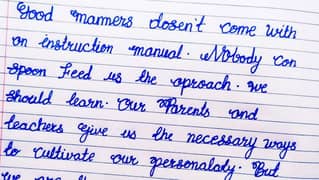 Good manners dosen't come with
an instruction manual. Nobody can
spoon feed us the aproach. we
should learn. Our Parents and
teachers give us the necessary ways
to cultivate our personalady. But
we are